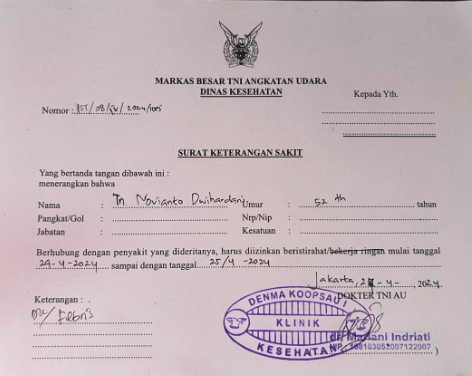 MARKAS BESAR TNI ANGKATAN UDARA
DINAS KESEHATAN
Kepada Yth.
Nomor :
SURAT KETERANGAN SAKIT
Yang bertanda tangan dibawah ini :
menerangkan bahwa
Nama : Tn Novianto Dwihardani Umur : 52 th tahun
Pangkat/Gol : Nrp/Nip :
Jabatan : Kesatuan :
Berhubung dengan penyakit yang dideritanya, harus diizinkan beristirahat/bekerja ringan mulai tanggal
24-4-2024 sampai dengan tanggal 25/4 -2024
Jakarta, -4- 2024
DOKTER TNI AU
Keterangan :
Febris
DENMA KOOPSAU I
KLINIK
KESEHATAN
dr. Indriati